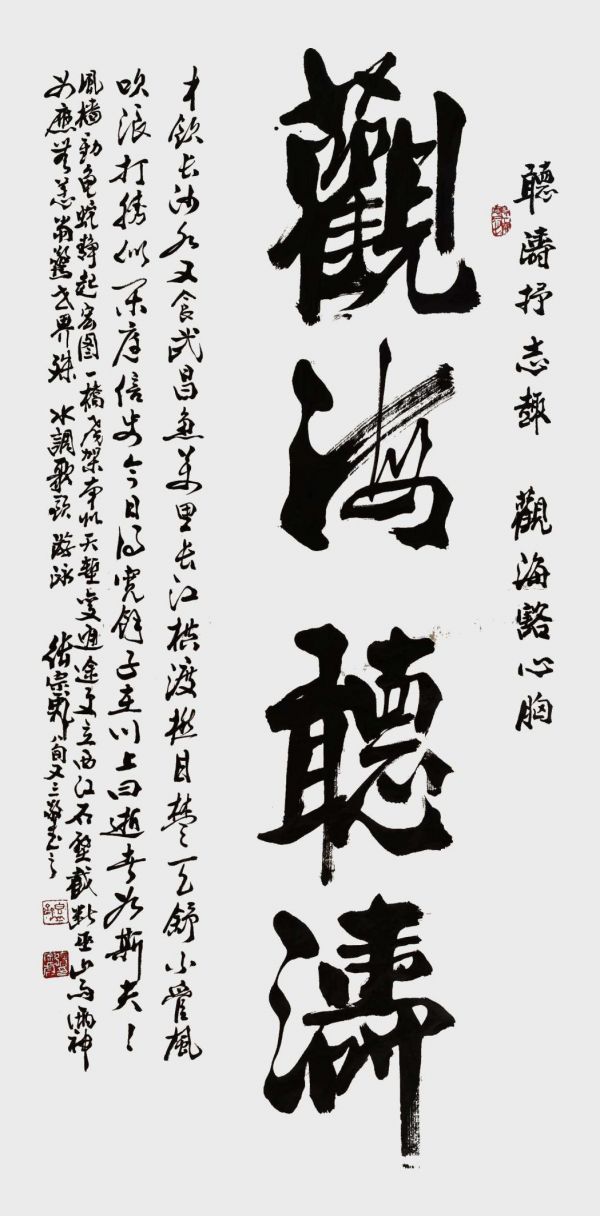 聽濤抒志趣 觀海豁心胸
觀海聽濤
才飲长沙水又食武昌魚萬里长江橫渡極目楚天舒不管風
吹浪打勝似閑庭信步今日得寬餘子在川上曰逝者如斯夫
風檣動龜蛇靜起宏图一橋飛架南北天塹變通途更立西江石壁截斷巫山 神
女應無恙當驚世界殊 水調歌頭 游泳 宗 八旬又三